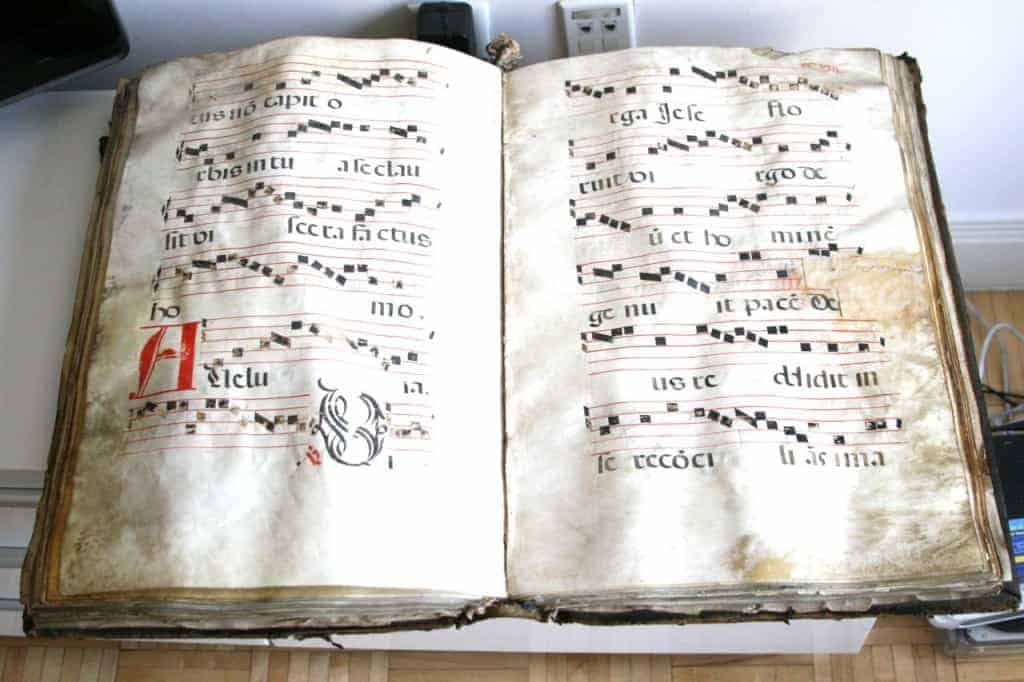 tus nō capit o
rbis in tu a se clau
sit vi scera factus
ho mo.
A lle lu ia.
V i
rga Jese flo
ruit vi rgo de
ū et ho minē
ge nu it pacē De
us re ddidit in
se recōci li ās ima